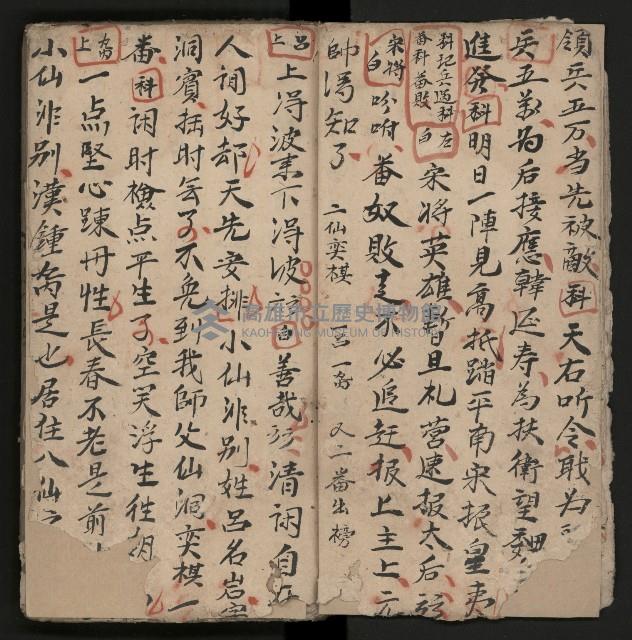 領兵五万当先被敵科天右听令戢为
兵五万为后接應韓延寿为扶衛望
進發科明日一陣見高抵踏平南宋报皇
科記兵过科左
番科番敗白
宋将英雄暫且札营速报太后
宋将白
吩咐番奴敗走不必追赶报上主上
帥得知了
二仙奕棋
呂一
又二番出榜
呂上
上得波來下得波
白
善哉
清闲自
人间好却天先安排小仙非别姓呂名岩
洞賓
时
了不免到我師父仙洞奕棋一
番科闲时檢点平生了空笑浮生往
上
一点堅心煉丹性長春不老是前
小仙非别漢鍾离是也居住八仙
高雄市立歷史博物館
KAOHSIUNG MUSEUM OF HISTORY